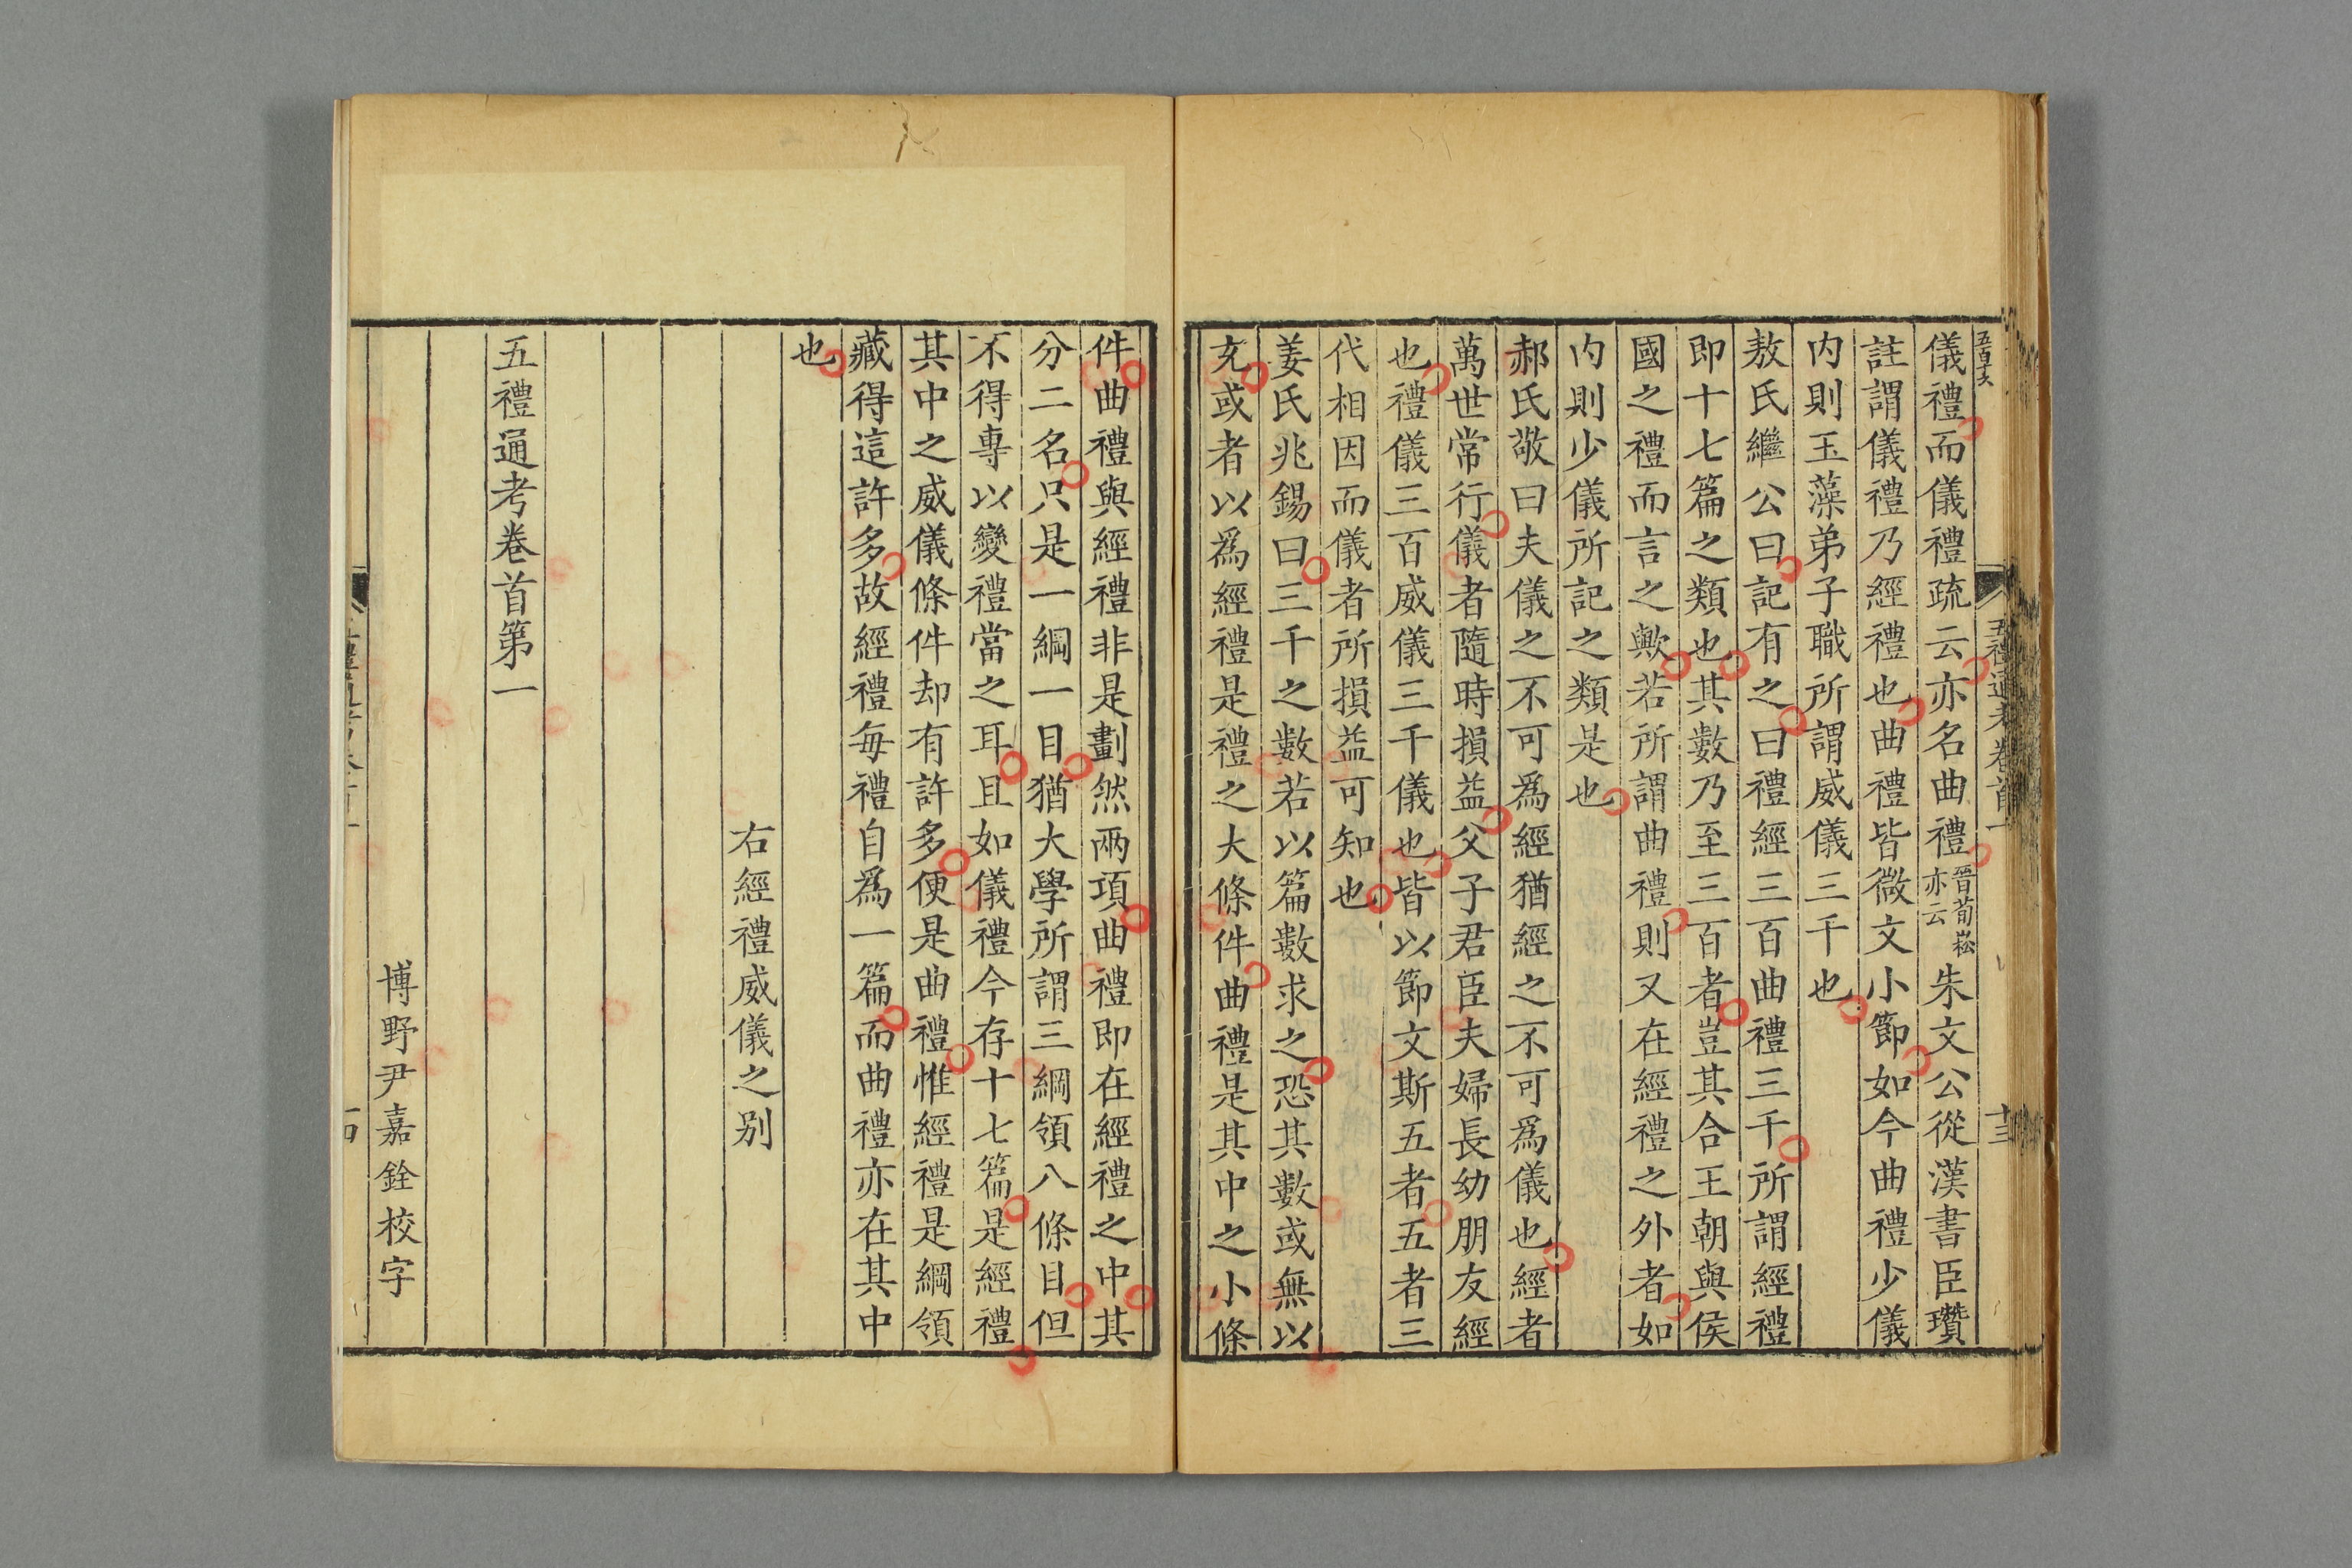 五百十六
五禮通考卷首一
十三
儀禮而儀禮疏云亦名曲禮晉荀崧亦云朱文公從漢書臣瓚
註謂儀禮乃經禮也曲禮皆微文小節如今曲禮少儀
内則玉藻弟子職所謂威儀三千也
敖氏繼公曰記有之曰禮經三百曲禮三千所謂經禮
即十七篇之類也其數乃至三百者豈其合王朝與侯
國之禮而言之歟若所謂曲禮則又在經禮之外者如
内則少儀所記之類是也
郝氏敬曰夫儀之不可爲經猶經之不可爲儀也經者
萬世常行儀者隨時損益父子君臣夫婦長幼朋友經
也禮儀三百威儀三千儀也皆以節文斯五者五者三
代相因而儀者所損益可知也
姜氏兆錫曰三千之數若以篇數求之恐其數或無以
充或者以爲經禮是禮之大條件曲禮是其中之小條
件曲禮與經禮非是劃然兩項曲禮即在經禮之中其
分二名只是一綱一目猶大學所謂三綱領八條目但
不得專以變禮當之耳且如儀禮今存十七篇是經禮
其中之威儀條件却有許多便是曲禮惟經禮是綱領
藏得這許多故經禮每禮自爲一篇而曲禮亦在其中
也
右經禮威儀之别
五禮通考卷首第一
博野尹嘉銓校字